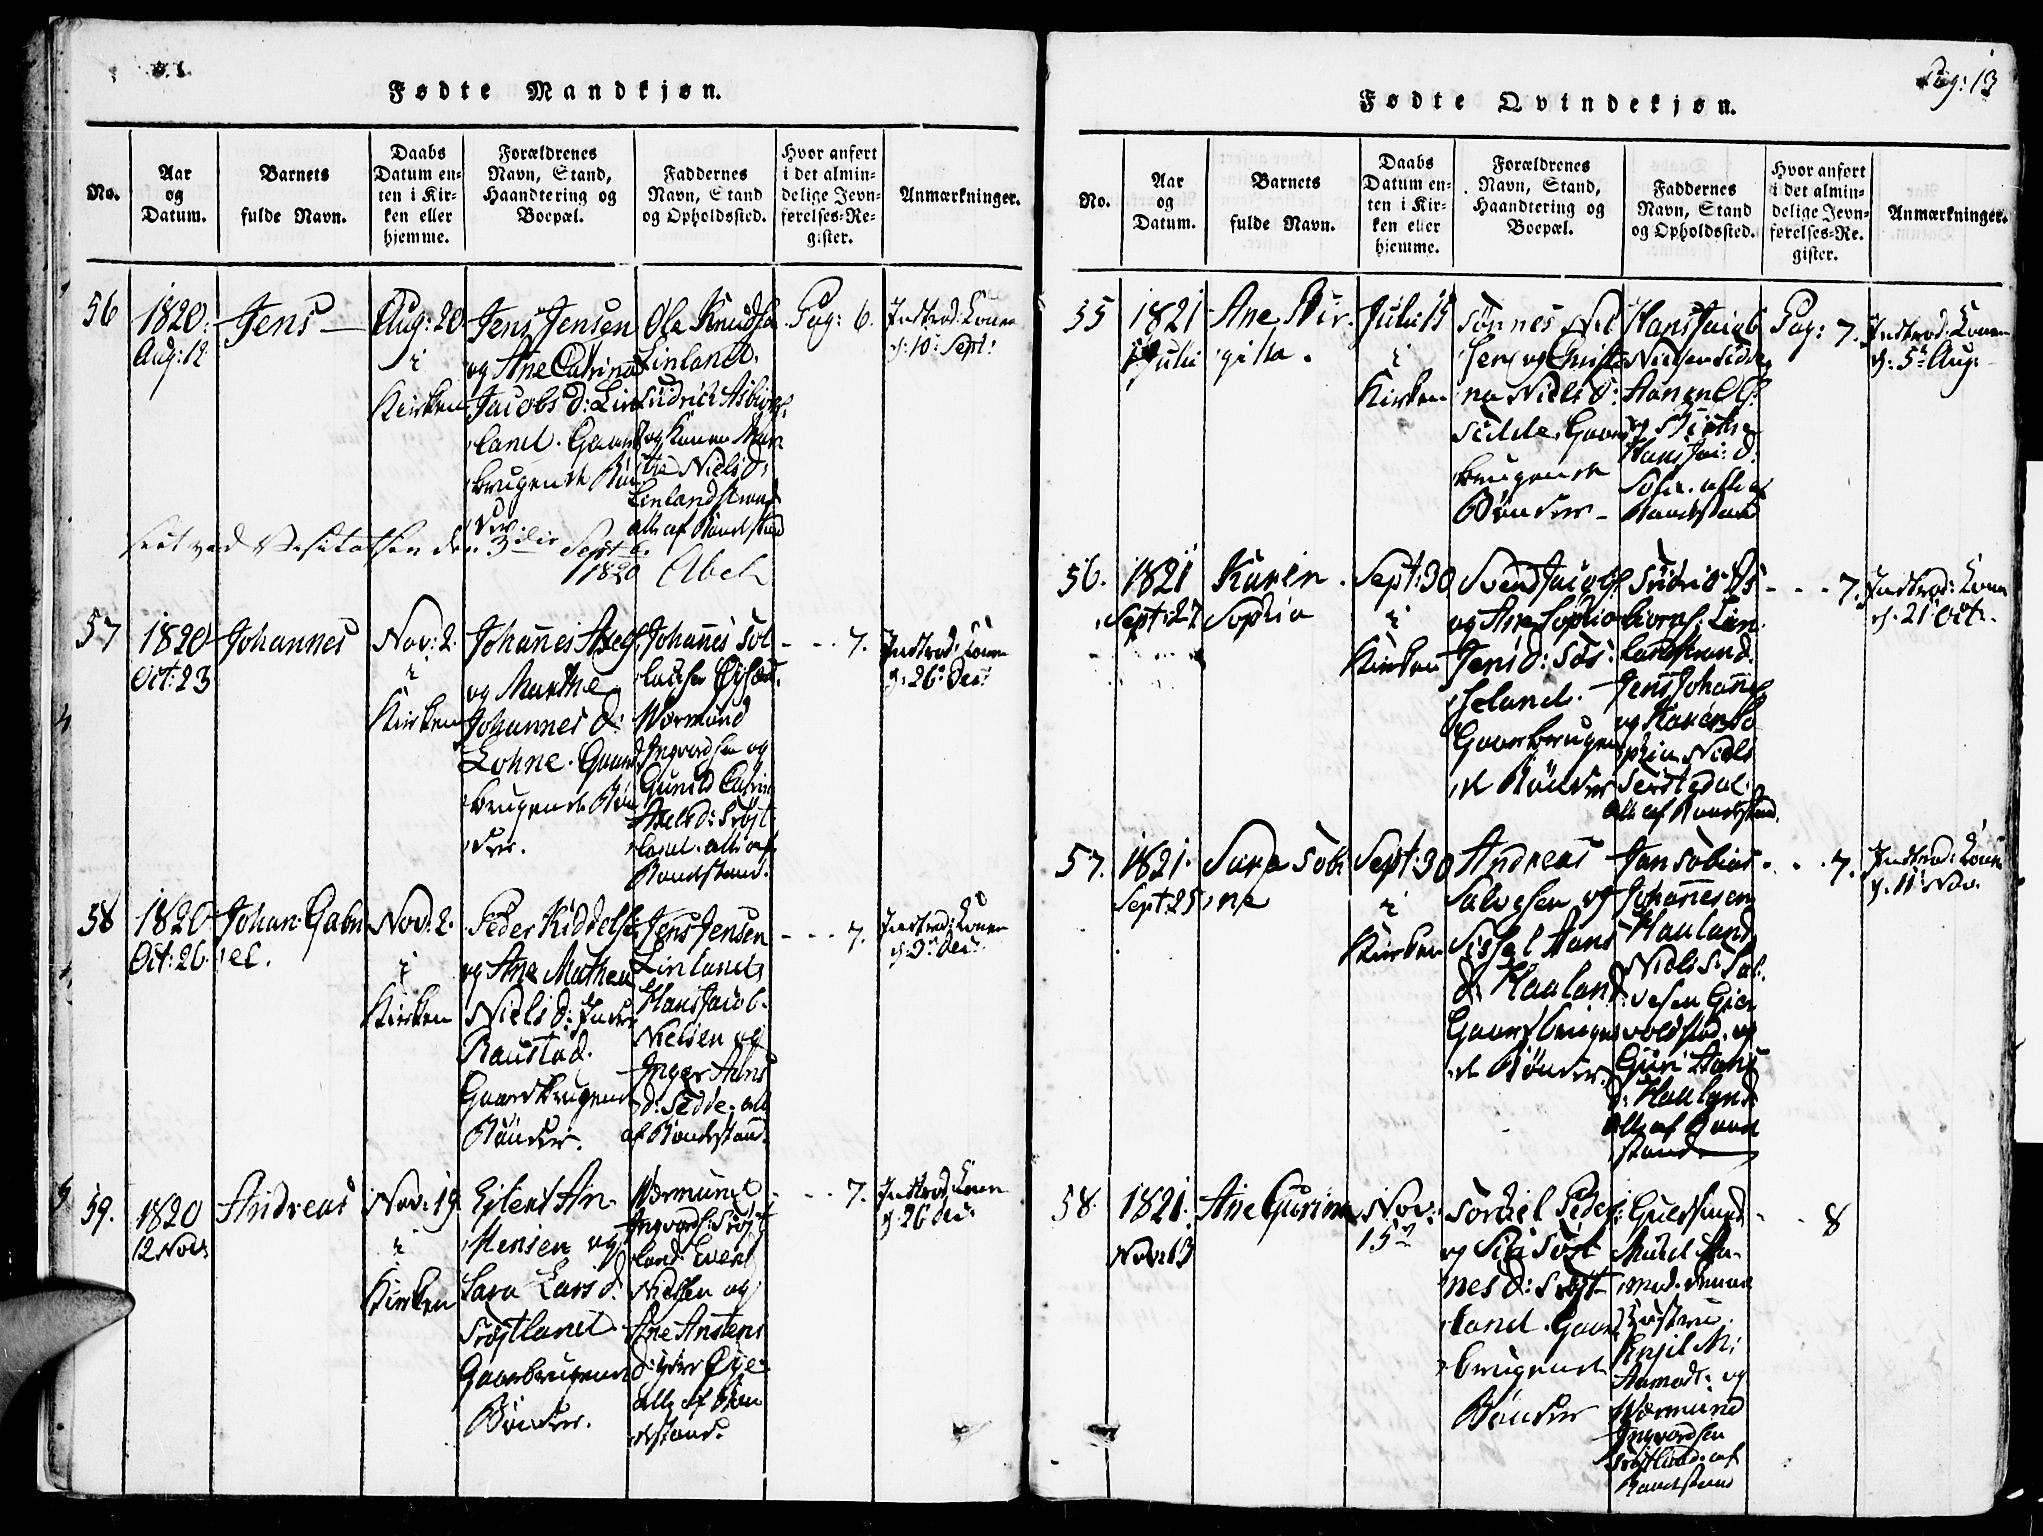 Fødte Mandkjøn.
No.
Aar
og
Datum.
Barnets
fulde Navn.
Daabs
Datum en-
ten i Kir-
ken eller
hjemme.
Forældrenes
Navn, Stand,
Haandtering og
Boepæl.
Faddernes
Navn, Stand
og Opholdssted.
Hvor anført
i det almin-
delige Jevn-
førelses-Re-
gister.
Anmærkninger.
56
1820.
Aug: 12
Jens
Aug: 20
i
Kirken
Jens Jensen
og Ane Catrina
Jacobs d: Lin
land. Gaard
brugende Bøn
der.
Ole Knudsen
Linland.
Asbiørs.
og Konen Mar
the Niels d:
Linland
alle af Bondestand
Pag: 6.
Introd: Konen
d: 10 Sept:
Visitatsen den 3die Sept
1820
57
1820
Oct: 23
Johannes
Nov: 2.
i
Kirken
Johannes
og Marthe
Johannes d:
Lohne. Gaard
brugende Bøn
der.
Johannes Tol
lacsen
Wormund
Ingvardsen og
Gunild Catrine
Axels d: Trøjt
land. alle af
Bondestand.
- - - 7.
Introd: Konen
d: 26 Dec:
58
1820
Oct: 26.
Johan Gabri
el.
Nov: 2.
i
Kirken
Peder Kiddels.
og Ane Mathea
Niels d: Indre
Raustad.
Gaardbrugende
Bønder.
Jens Jensen
Linland,
Hans Jacob
Nielsen og
Inger Aans
d: Tedde. alle
af Bondestand.
- - - 7.
Introd: Konen
d: 3 Dec:
59.
1820
12 Nov:
Andreas
Nov: 19
i
Kirken
Eilert An
stensen og
Sara Lars d.
Trøjtland
Gaardbrugende
Bønder.
Wormund
Ingvards: Trøjt
land. Evert
Nielsen og
Ane Anstens
d: Øye
alle af Bon
destand.
- - - 7.
Introd: Konen
d: 26 Dec:
Pag: 13
Fødte Qvindekjøn.
No.
Aar
og
Datum.
Barnets
fulde Navn.
Daabs
Datum en-
ten i Kir-
ken eller
hjemme.
Forældrenes
Navn, Stand,
Haandtering og
Boepæl.
Faddernes
Navn, Stand
og Opholdssted.
Hvor anført
i det almin-
delige Jevn-
førelses-Re-
gister.
Anmærkninger.
55
1821
Juli
Ane Bir
gitta.
Juli 15
i
Kirken
Tønnes Niel
sen og Christi
na Niels d:
Tedde. Gaard
brugende
Bønder
Hans Jacob
Nielsen Tedde,
og Birthe
Hans Jac: d:
alle af
Bondestand
Pag: 7.
Introd: Konen
d: 5 Aug:
56.
1821
Sept: 27
Karen
Sophia
Sept: 30
i
Kirken
Svend Jacobs.
og Ane Sophia
Jens d: Tøs
seland.
Gaardbrugen
de Bønder
As
biorns: Lin
landstrand.
Jens Johans
og Karen So
phia Niels
alle af Bondestand.
- - - 7.
Introd: Konen
d. 21 Oct.
57.
1821.
Sept: 25
Sara Tobi
ne
Sept: 30
i
Kirken
Andreas
Salvesen og
Sissel Hans
d: Haaland
Gaardbrugen
de Bønder.
Jan Tobias
Johannesen
Haaland
Niels Sal
vesen Gier
voldstad, og
Guri Hans
d: Haaland
alle af Bonde
stand
- - - 7.
Introd: Konen
d. 11 Nov.
58.
1821.
Nov: 13
Ane Gurine
Nov:
15
Torkiel Peders
og Siri Tøst
nes d: Trøjt
land. Gaard
brugende
Bønder
Enjel M:
Aamodt: og
Wormund
Ingvardsen
Trøjtland. af
Bondestand
- - 8